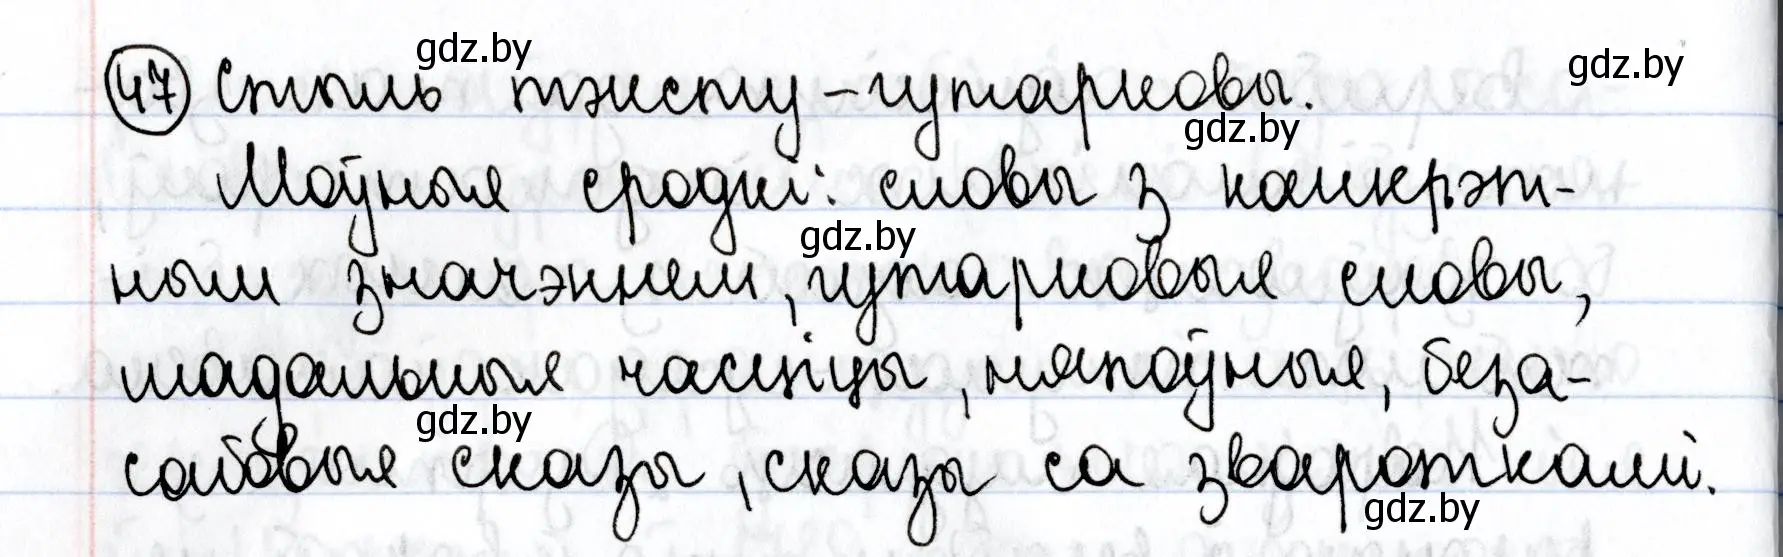 gdz.by
gdz.by
47 Стыль тэксту – гутарковы.
gdz.by
Моўныя сродкі: словы з канкрэт-
gdz.by
ным значэннем, гутарковыя словы,
мадальныя часціцы, няпоўныя, беза-
gdz.by
сабовыя сказы, сказы са зваротками.
gdz.by